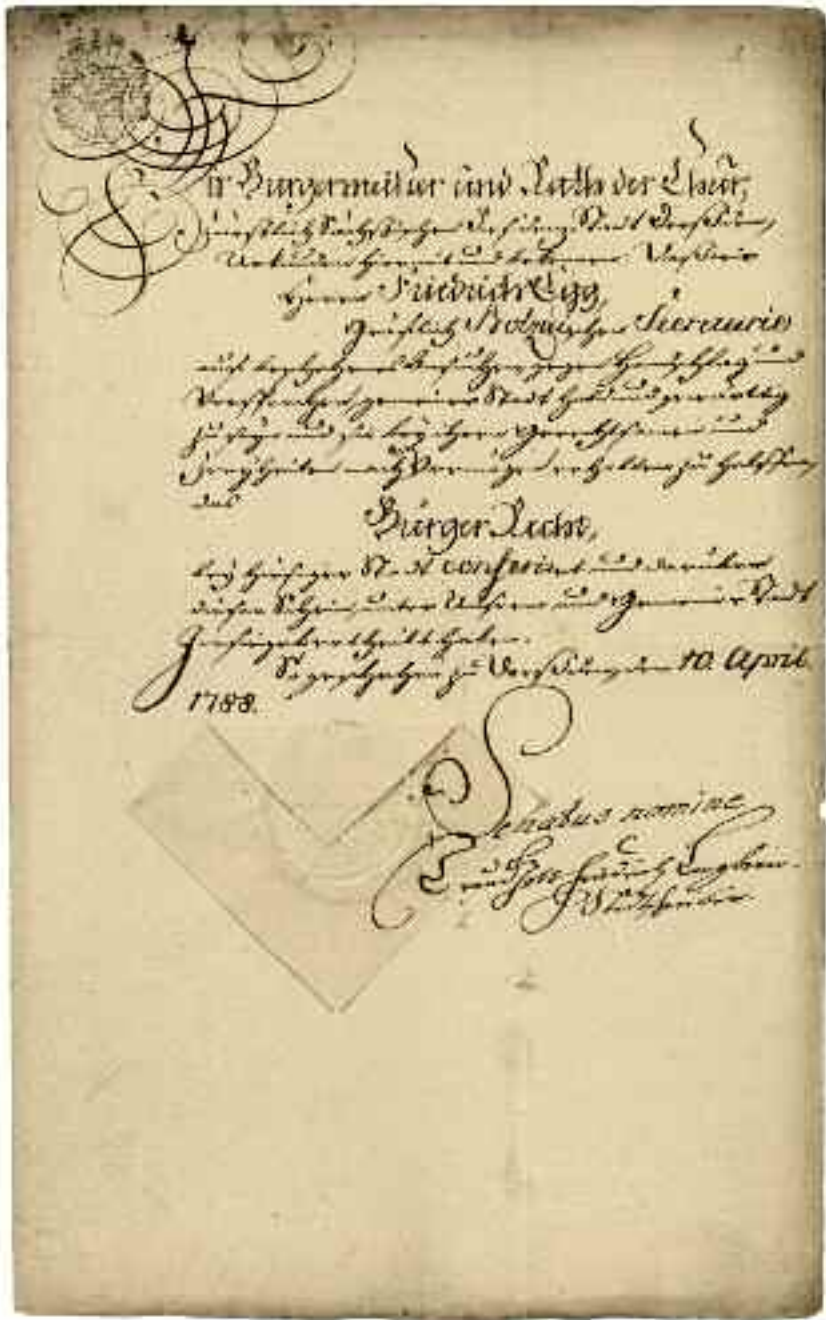 Wir Bürgermeister und Rath der Chur,
Fürstlich Sächsischen Residenz Stadt Dreßden,
Urkunden hiermit und bekennen Daß wir
Herrn Friedrich Egg,
Gräflich Secretario
auf beschehenes Ansuchen, gegen Handschlag und
Versprechen, gemeiner Stadt hold und gewärtig
zu seyn und sie bey ihren Gerechtsamen und
Freyheiten nach Vermögen erhalten zu helffen,
das
Bürger Recht,
bey hiesiger Stadt conferiret und darüber
diesen Schein, unter Unserm und Gemeiner Stadt
Insiegel ertheilt haben.
So geschehen zu Dreßden, den 10. April.
1788.
Senatus nomine
Friedrich